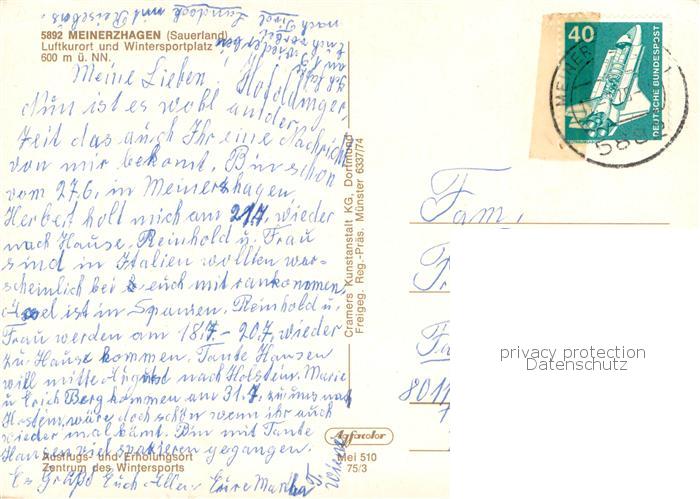 5892 MEINERZHAGEN (Sauerland)
Luftkurort und Wintersportplatz
600 m ü. NN.
nach Tirol Landeck mit Reisebus.
Meine Lieben
Nun ist es wohl an der
Zeit das auch Ihr eine Nachricht
von mir bekomt. Bin schon
vom 27.6. in Meinerzhagen,
Herbert holt mich am 21.7. wieder
nach Hause. Reinhold u. Frau
sind in Italien wollten war-
scheinlich bei euch mit rankommen.
Axel ist in Spanien. Reinhold u.
Frau werden am 18.7 – 20.7. wieder
zu Hause kommen. Tante Hansen
will mitte August nach Holstein. Marie
u. Erich Berg kommen am 31.7. zu uns nach
Hostein, wäre doch schön wenn ihr auch
wieder mal kämt. Bin mit Tante
Hansen viel spazieren gegangen.
Es Grüße Euch Alle Eure Martha
Ausflugs- und Erholungsort
Zentrum des Wintersports
Cramers Kunstanstalt KG, Dortmund
Freigeg. Reg.-Präs. Münster 6337/74
Agfacolor
Mei 510
75/3
40
DEUTSCHE BUNDESPOST
MEINER
5892
Fam.
8011
privacy protection
Datenschutz